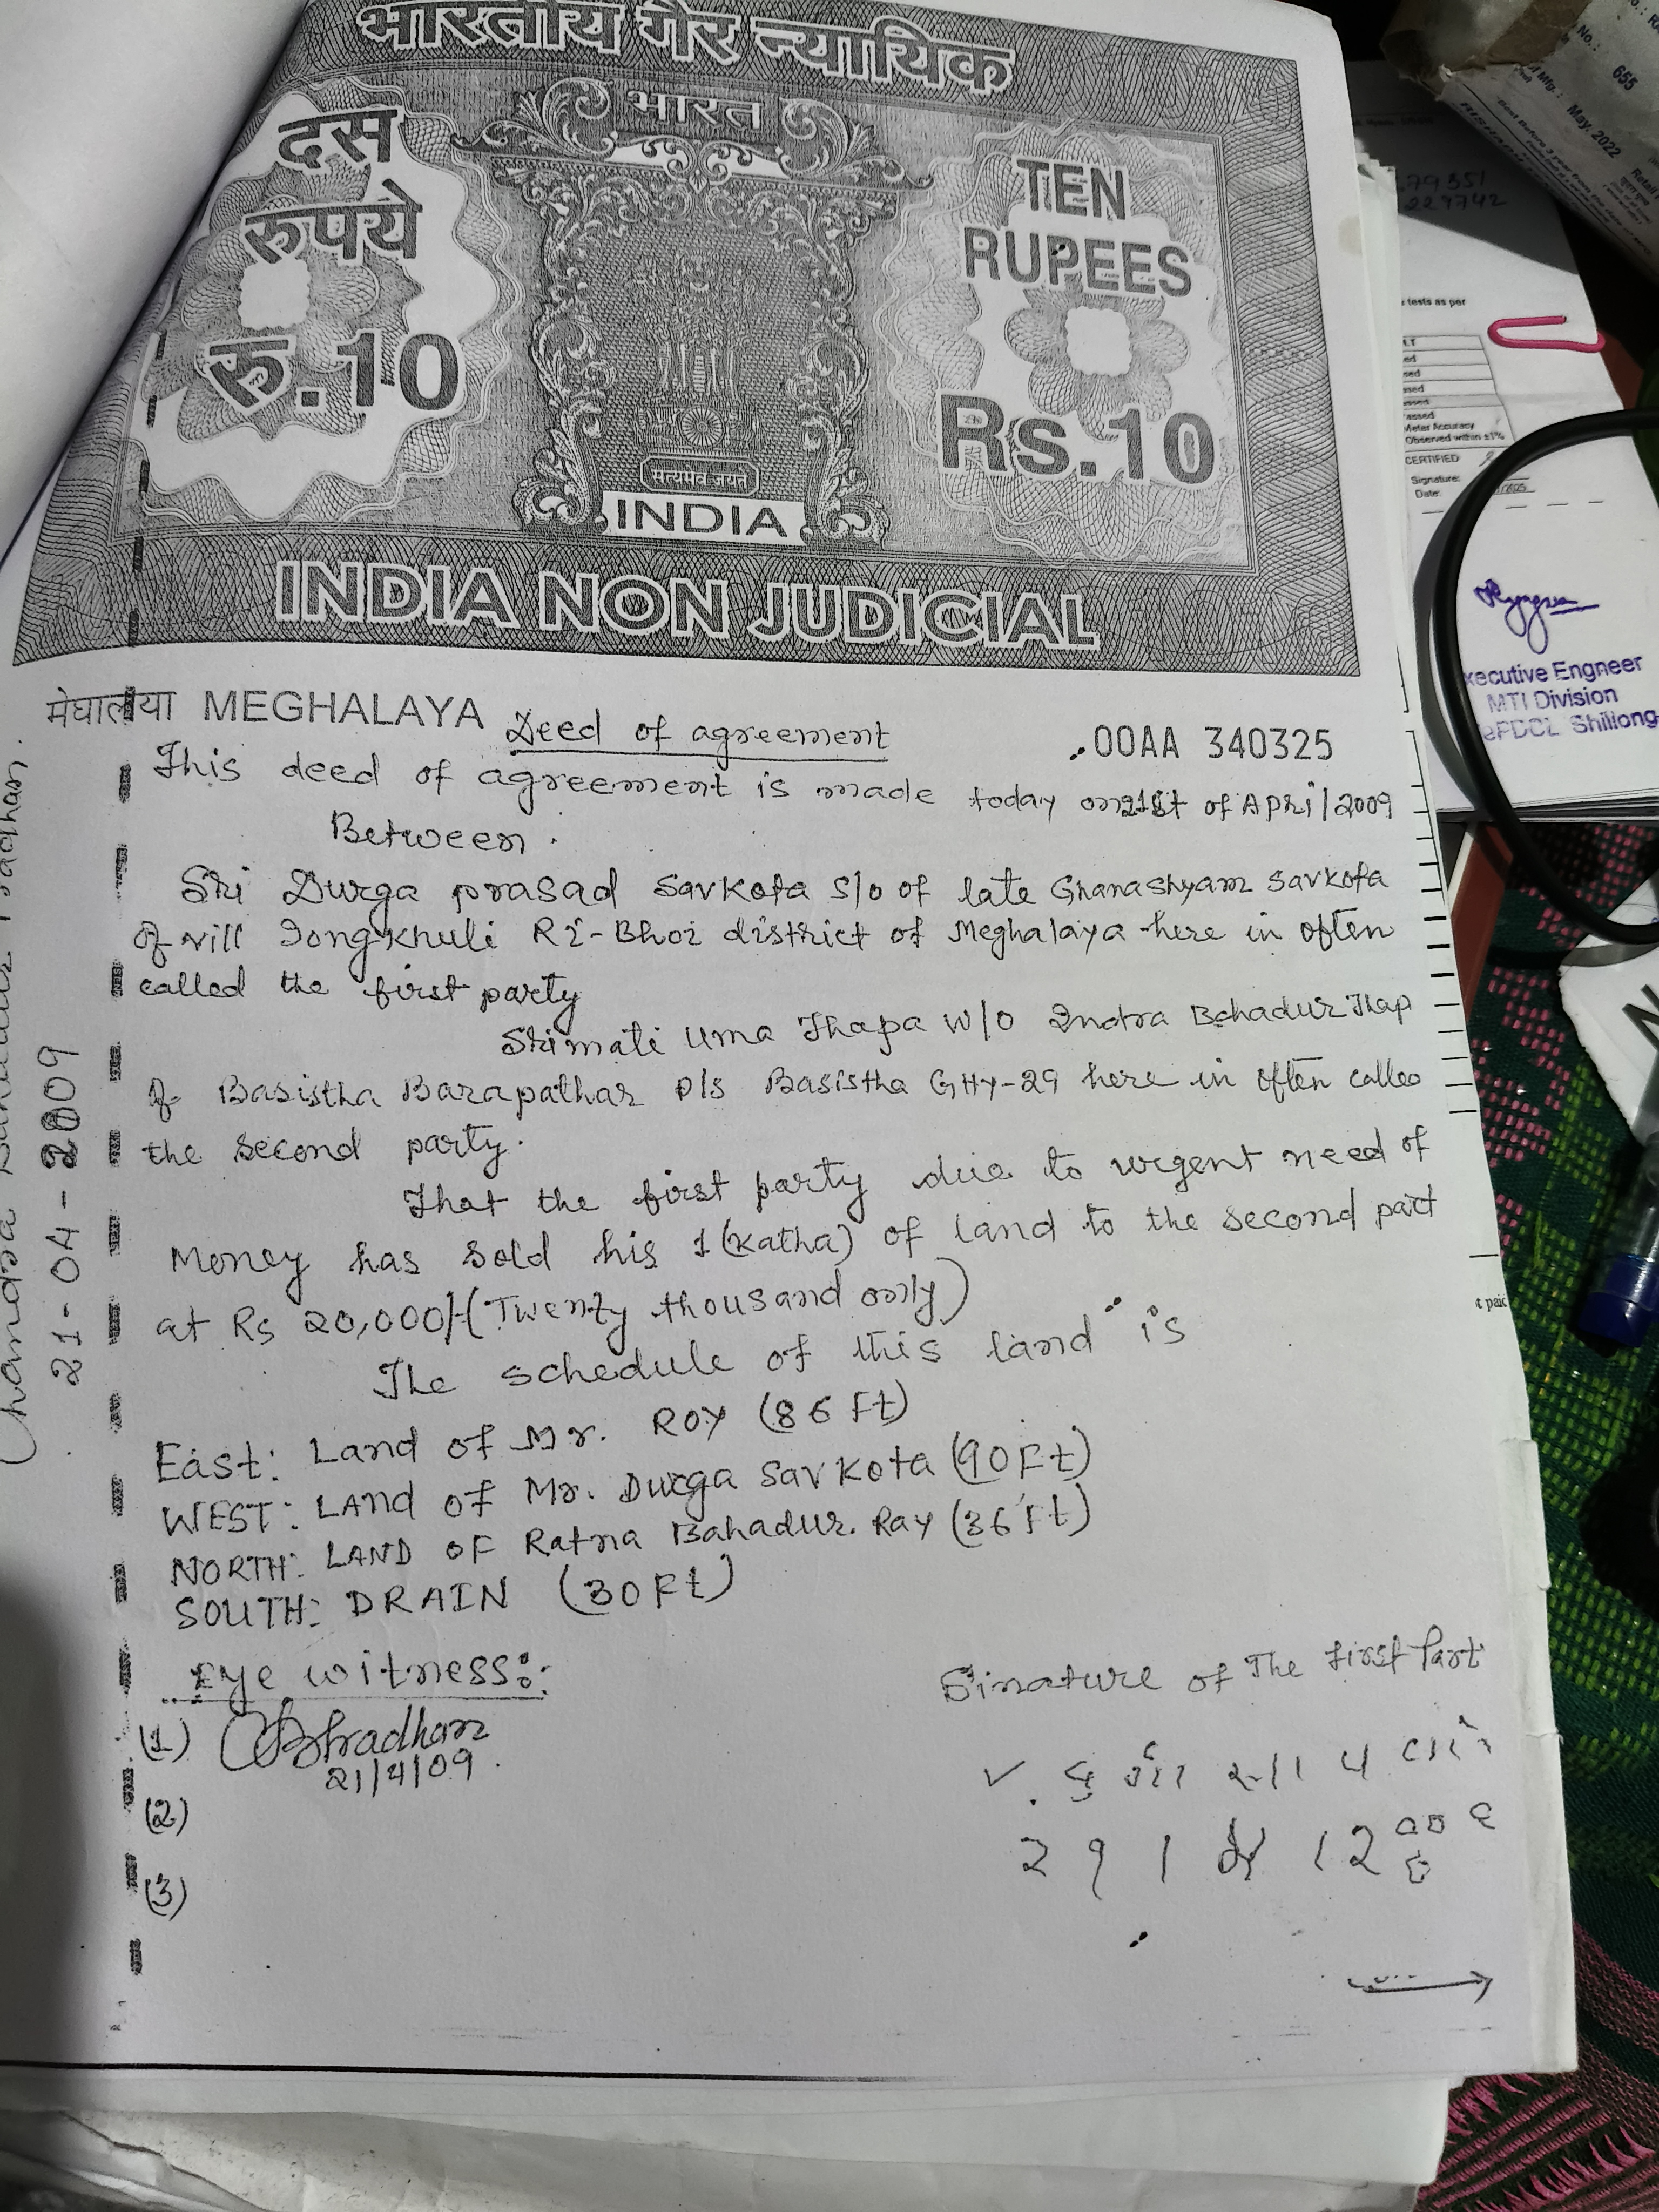 भारतीय गैर न्यायिक
भारत
दस
रुपये
रु.10
TEN
RUPEES
Rs.10
सत्यमेव जयते
INDIA
INDIA NON JUDICIAL
मेघालया MEGHALAYA
00AA 340325
Deed of agreement
This deed of agreement is made today on 21st of April/2009
Between.
Sri Durga prasad Savkota S/o of late Ghanashyam Savkota
of vill Jongkhuli Ri-Bhoi district of Meghalaya here in often
called the first party
Srimati Uma Thapa W/O Indra Bahadur Thap
of Basistha Barapathar P/s Basistha GHY-29 here in often called
the second party.
That the first party due to urgent need of
Money has sold his 1 (Katha) of land to the second part
at Rs 20,000/-(Twenty thousand only)
The schedule of this land is
East: Land of Mr. ROY (86 Ft)
WEST: LAnd of Mr. Durga SavKota (90Ft)
NORTH: LAND OF Ratna Bahadur. Ray (36 Ft)
SOUTH: DRAIN (30Ft)
Eye witness::
(1) CBPradhan
21/4/09.
(2)
(3)
Sinature of The First Part
21-04-2009
655
May. 2022
79351
229742
tests as per
Meter Accuracy
Observed within ±1%
CERTIFIED
Signature:
Date:
xecutive Engneer
MTI Division
ePDCL Shillong